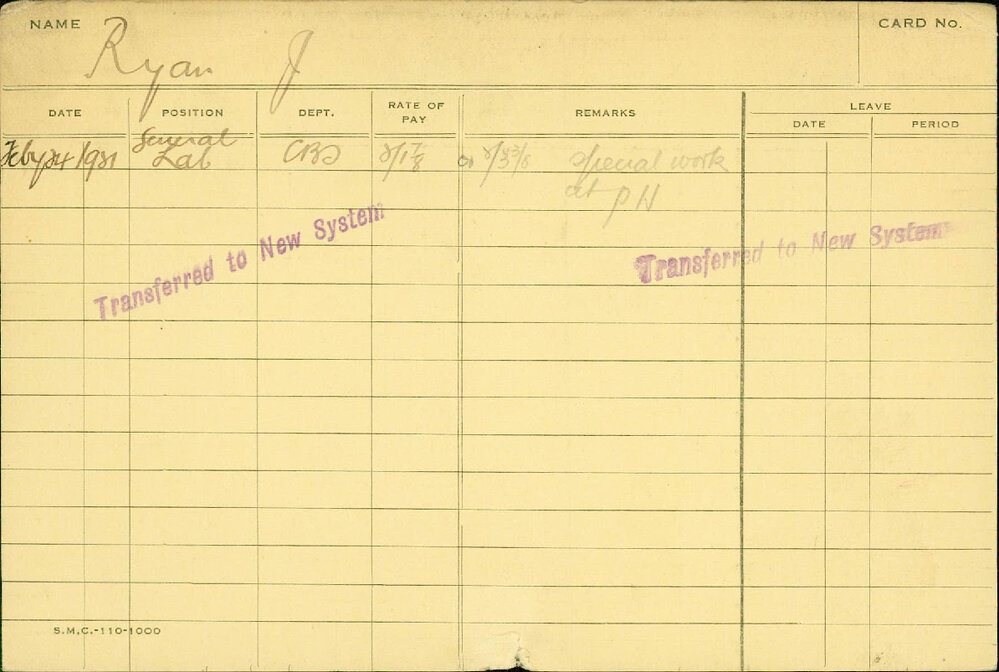 NAME
Ryan J
CARD No.
DATE
POSITION
DEPT.
RATE OF PAY
REMARKS
LEAVE
DATE
PERIOD
General
Feby 24/1921 Lab 2/1 7/8 special work
at PH
Transferred to New System
Transferred to New System
S.M.C.-110-1000